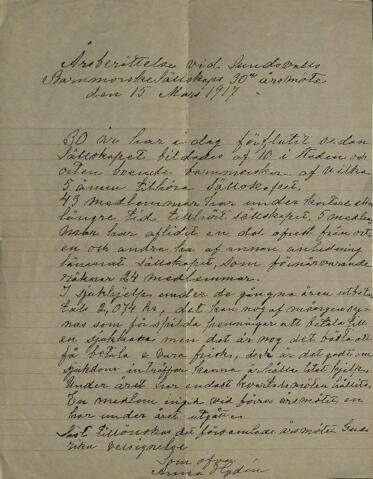 Årsberättelse vid Sundsvalls
Barnmorske Sällskaps 30de årsmöte
den 15 Mars 1917
30 år har i dag förflutit sedan
Sällskapet bildades af 10 i staden och
orten boende barnmorskor af vilka
5 ännu tillhöra Sällskapet.
43 medlemmar har under kortare eller
längre tid tillhört sällskapet, 5 medlem
mar har aflidit en del afrest från ort
en och andra ha af annan anledning
lämnat sällskapet, som förnärvarande
räknar 24 medlemmar.
I sjukhjelp under de gångna åren utbeta
lats 2,074 kr, det kan nog af mången sy
nas som förspilda penningar att betala till
en sjukkassa men det är nog det bästa att
få betala o vara frisk, dock är det godt om
sjukdom inträffar kunna erhålla litet hjelp.
Under året har endast kvartalsmöten hållits.
En medlem ingick vid förra årsmötet en
har under året utgått.
Sist tillönskas det församlade årsmötet
Som ofvan
Anna